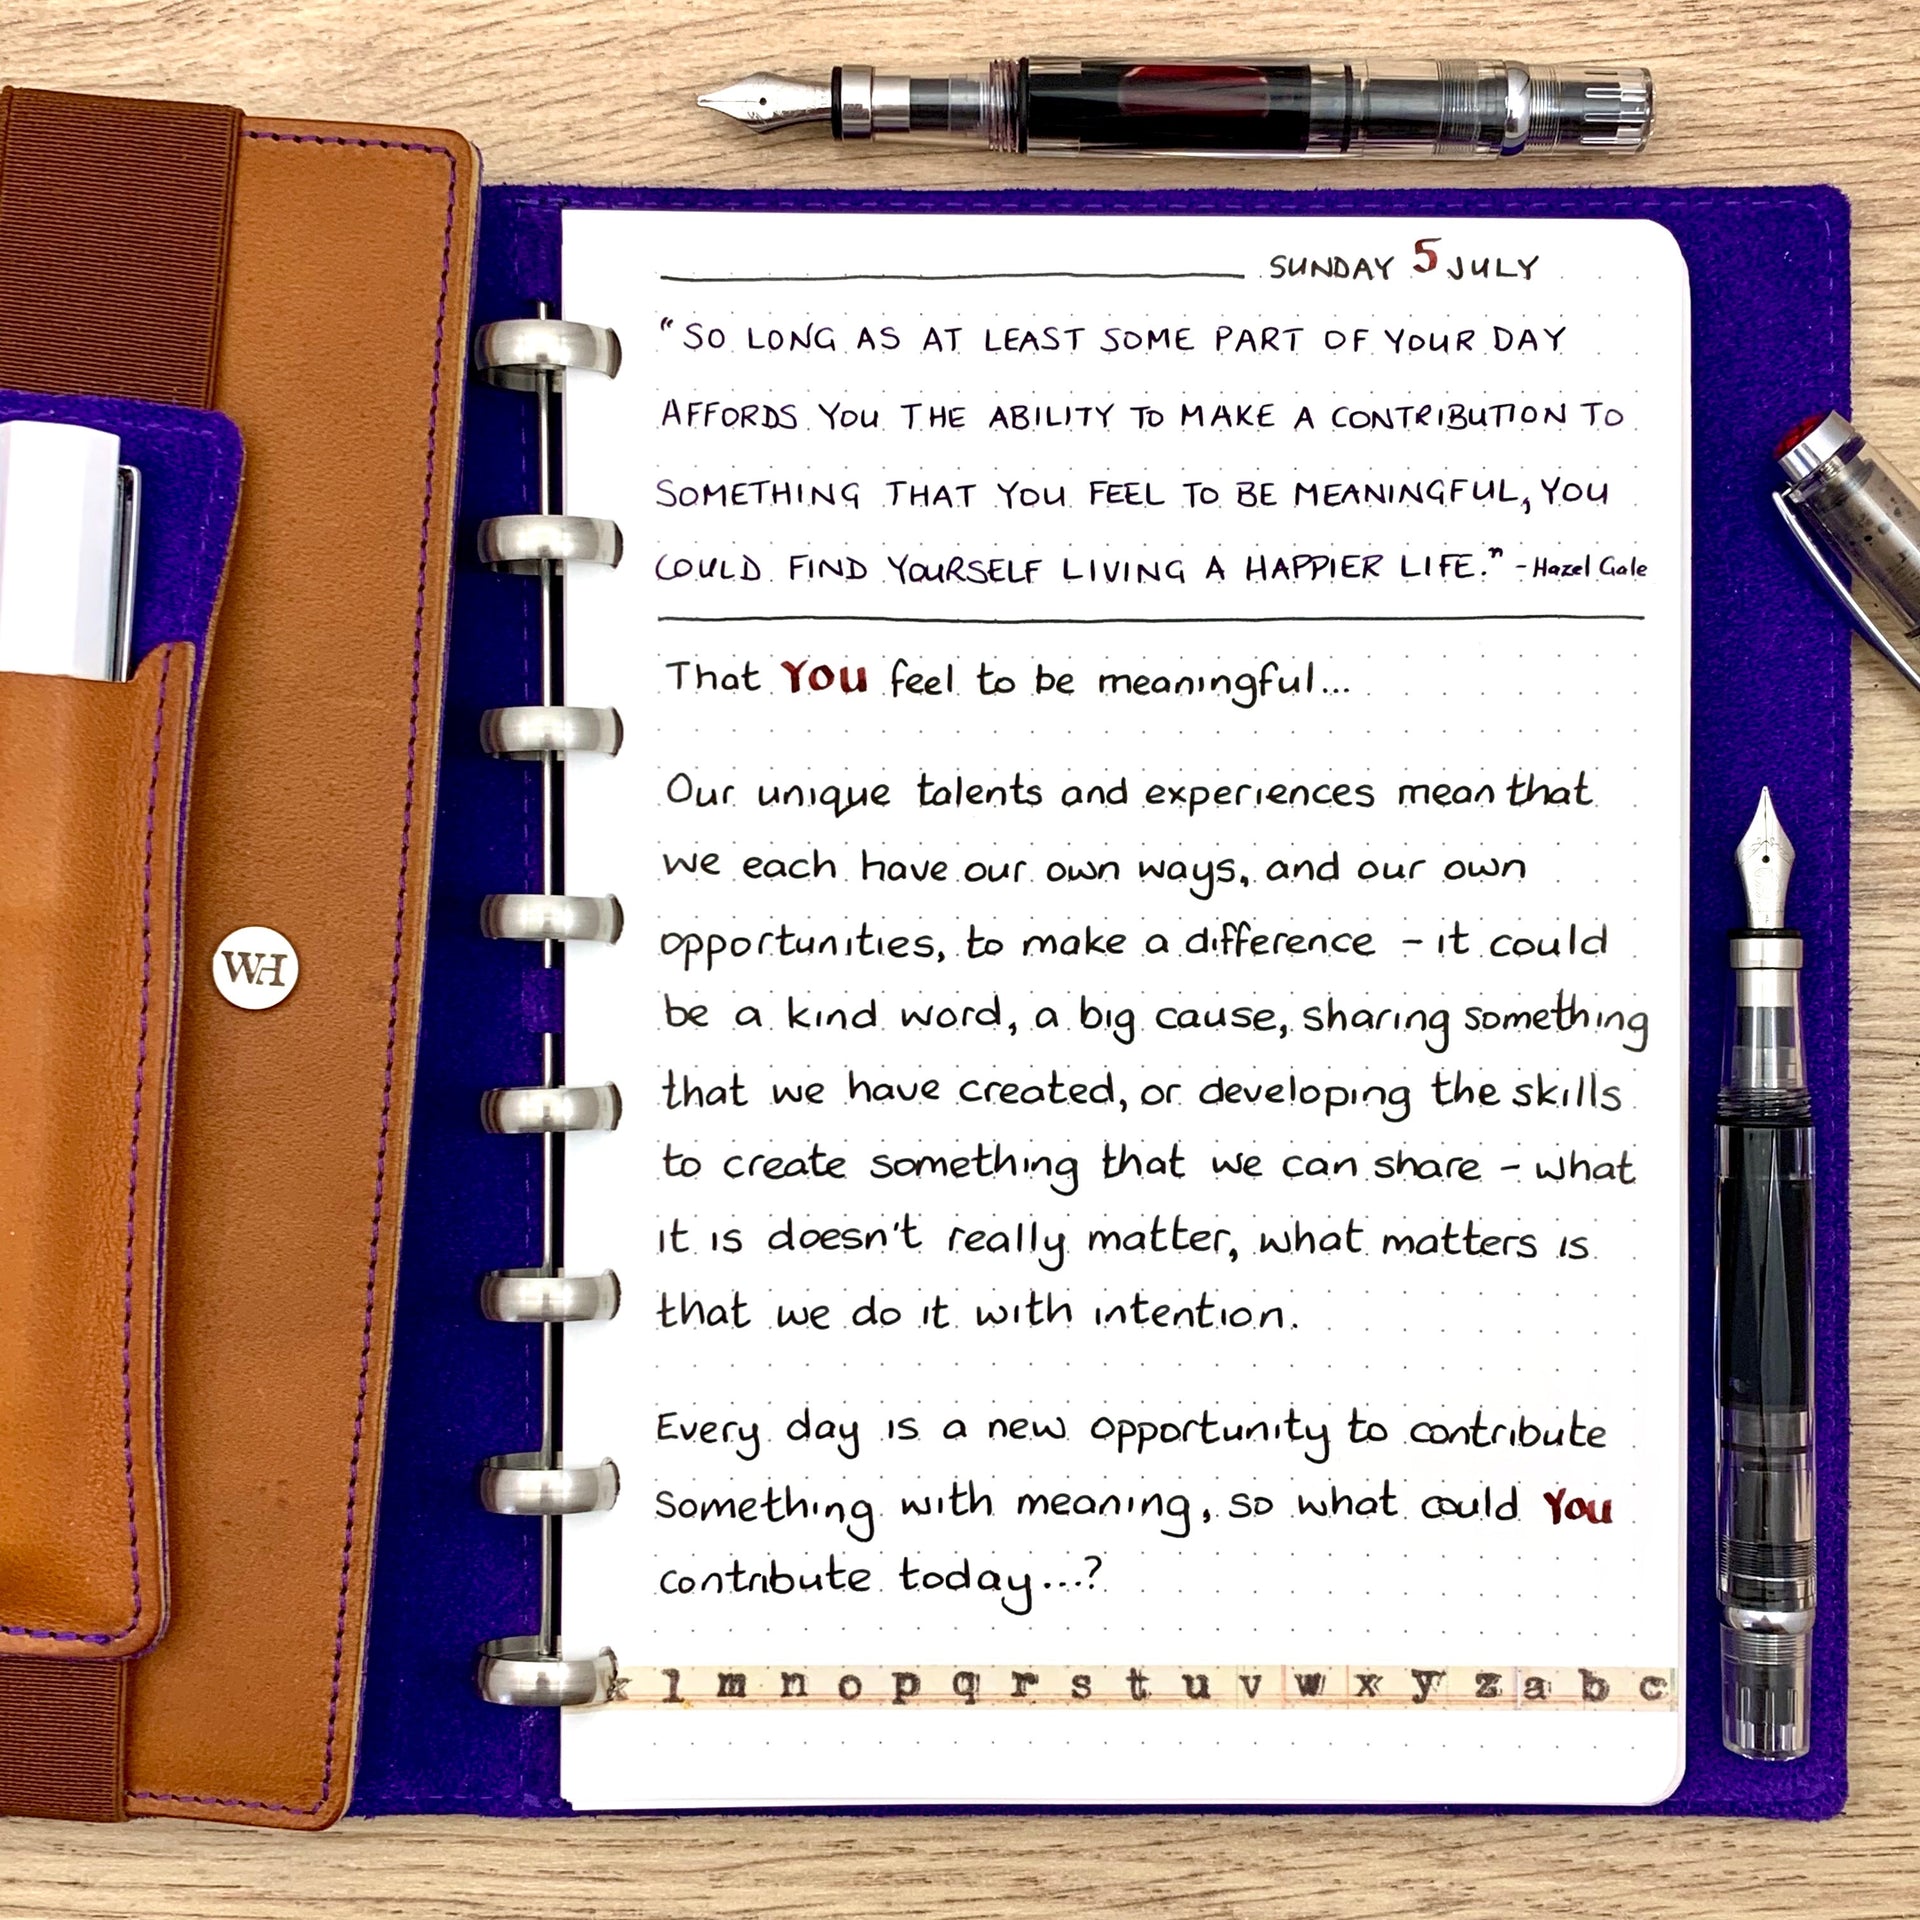 SUNDAY 5 JULY
"SO LONG AS AT LEAST SOME PART OF YOUR DAY
AFFORDS YOU THE ABILITY TO MAKE A CONTRIBUTION TO
SOMETHING THAT YOU FEEL TO BE MEANINGFUL, YOU
COULD FIND YOURSELF LIVING A HAPPIER LIFE." - Hazel Gale
That YOU feel to be meaningful...
Our unique talents and experiences mean that
we each have our own ways, and our own
opportunities, to make a difference - it could
be a kind word, a big cause, sharing something
that we have created, or developing the skills
to create something that we can share - what
it is doesn't really matter, what matters is
that we do it with intention.
Every day is a new opportunity to contribute
something with meaning, so what could YOU
contribute today...?
k l m n o p q r s t u v w x y z a b c
WH